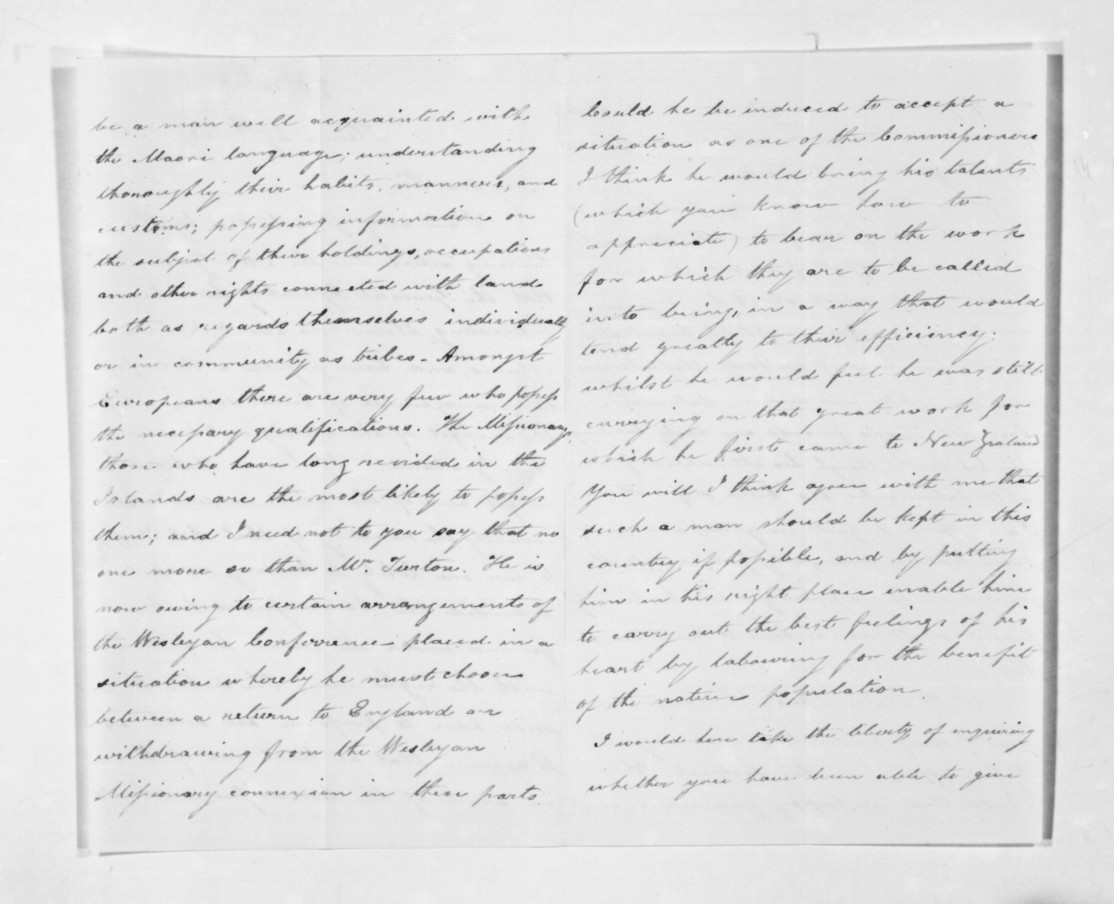 be a man well acquainted with
the Maori language; understanding
thoroughly their habits, manners, and
customs; possessing information on
the subject of their holdings, occupations
and other rights connected with land
both as regards themselves individually
or in community as tribes - Amongst
Europeans there are very few who possess
the necessary qualifications. The Missionary
those who have long resided in the
Islands are the most likely to possess
them; and I need not to you say that no
one more so than Mr. Turton. He is
now owing to certain arrangements of
the Wesleyan Conference placed in a
situation whereby he must choose
between a return to England or
withdrawing from the Wesleyan
Missionary connexion in these parts.
Could he be induced to accept a
situation as one of the Commissioners
I think he would bring his talents
(which you know how to
appreciate) to bear on the work
for which they are to be called
into being, in a way that would
tend greatly to their efficiency:
whilst he would feel he was still
carrying on that great work for
which he first came to New Zealand
You will I think agree with me that
such a man should be kept in this
country if possible, and by putting
him in his right place enable him
to carry out the best feelings of his
heart by labouring for the benefit
of the native population.
I would here take the liberty of enquiring
whether you have been able to give